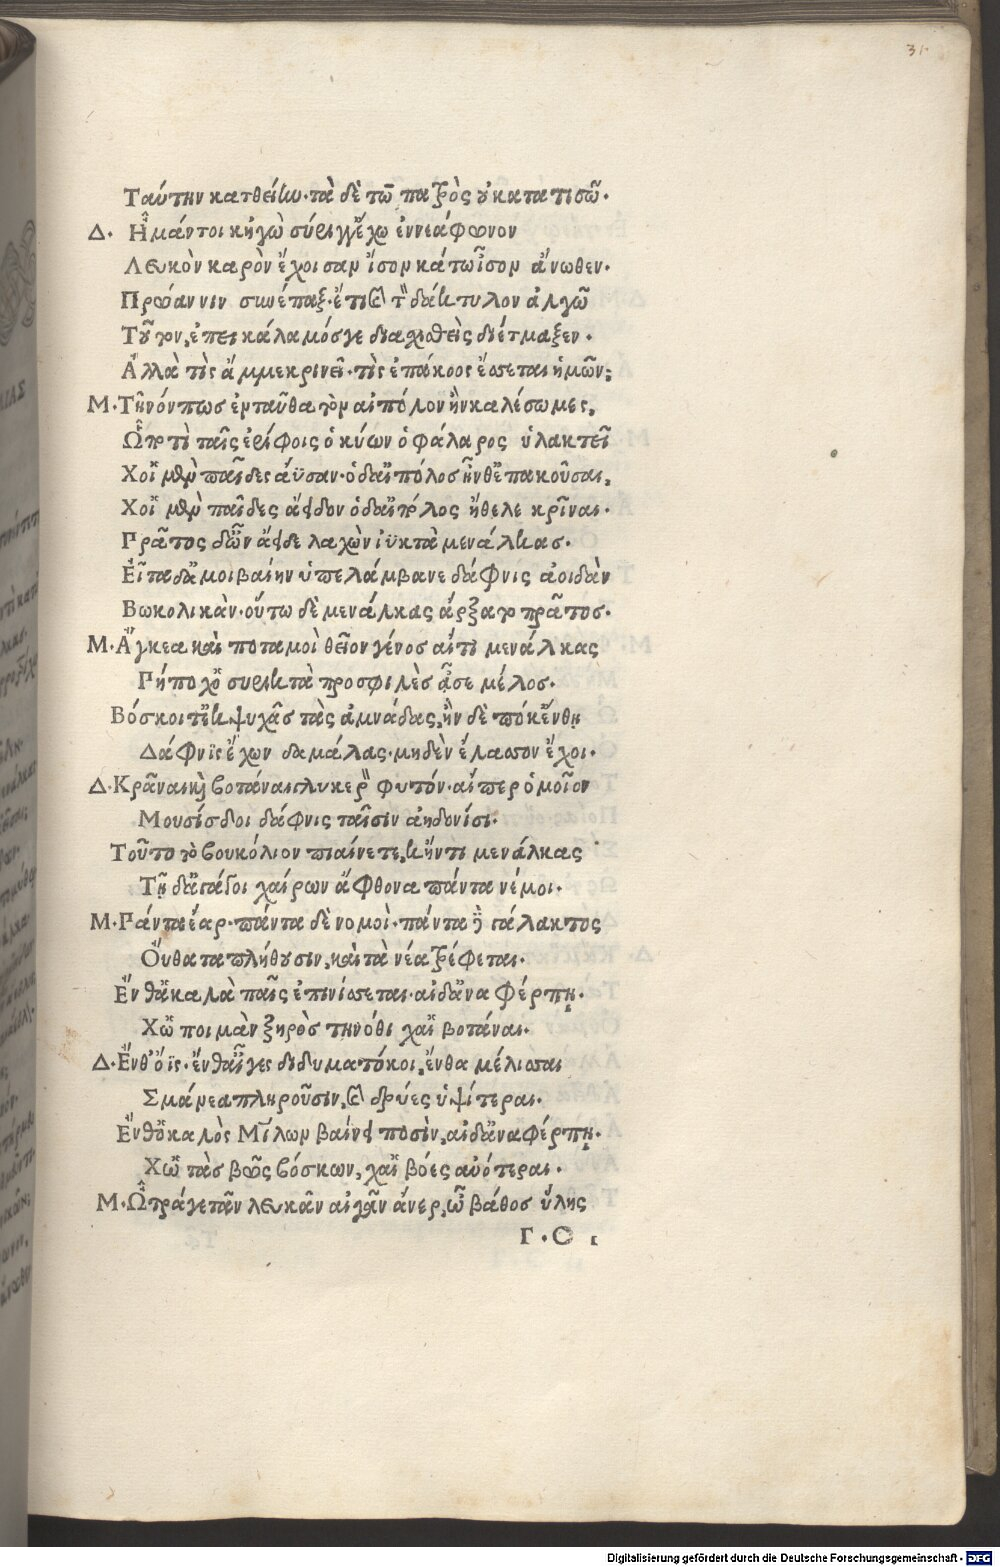 31
Ταύτην κατθείω· τὰ δὲ τῶ παῖρὸς οὐ κατατισῶ·
Δ· Η῏ μάντοι κἠγὼ σύριγγ᾽ ἔχω ἐννεάφωνον
Λευκὸν καρὸν ἔχοισαν ἴσον κάτω ἶσον ἄνωθεν·
Πρώαν νιν συνέπαξ· ἔτι καὶ τὸν δάκτυλον ἀλγῶ
Τοῦτον, ἐπεὶ κάλαμός γε διαχισθεὶς διέτμαξεν·
Ἀλλὰ τὶς ἄμμε κρινεῖ· τὶς ἐπάκοος ἔσσεται ἡμῶν;
Μ· Τῆνόν πως ἐνταῦθα τὸν αἰπόλον ἢν καλέσωμες,
Ω῟ τοι ταῖς ἐρίφοις ὁ κύων ὁ φάλαρος ὑλακτεῖ
Χοἲ μὲν παῖδες ἀύσαν· ὁ δ᾽ αἰπόλος ἦνθ᾽ ἐπακοῦσαι,
Χοἲ μὲν παῖδες ἄειδον ὁ δ᾽ αἰπόλος ἤθελε κρῖναι·
Πρᾶτος δ᾽ ὦν ἄειδε λαχὼν ἰϋκτὰ μενάλκας·
Εἶτα δ᾽ ἀμοιβαίην ὑπελάμβανε δάφνις ἀοιδὰν
Βωκολικὰν· οὕτω δὲ μενάλκας ἄρξατο πρᾶτος·
Μ· Ἄγκεα καὶ ποταμοὶ θεῖον γένος αἴ τι μενάλκας
Πήποχ᾽ ὃ συρικτὰ προσφιλὲς ἆσε μέλος·
Βόσκοιτ᾽ ἐκ ψυχᾶς τὰς ἀμνάδας, ἢν δὲ πόκ᾽ ἔνθῃ
Δάφνις ἔχων δαμάλας· μηδὲν ἔλασσον ἔχοι·
Δ· Κρᾶναι κὴ βοτάναι γλυκερὸν φυτόν· αἴπερ ὁμοῖον
Μουσίσδοι δάφνις ταῖσιν ἀηδονίσι·
Τοῦτο τὸ βουκόλιον πιαίνετε, κἤν τι μενάλκας
Τῇ δ᾽ ἀγάγοι χαίρων ἄφθονα πάντα νέμοι·
Μ· Πάντα ἔαρ· πάντα δὲ νομοὶ· πάντα ἢ γάλακτος
Οὔθατα πλήθουσιν, καὶ τὰ νέα τρέφεται·
Ἔνθ᾽ ἁ καλὰ παῖς ἐπινίσεται· αἰ δ᾽ ἂν ἀφέρπῃ·
Χὢ ποιμὰν ξηρὸς τηνόθι χαἲ βοτάναι·
Δ· Ἔνθ᾽ ὄϊς· ἔνθ᾽ αἶγες διδυματόκοι, ἔνθα μέλισσαι
Σμάνεα πληροῦσιν, καὶ δρύες ὑψίτεραι·
Ἔνθ᾽ ὁ καλὸς Μίλων βαίνει ποσὶν, αἰ δ᾽ ἂν ἀφέρπῃ·
Χὢ τὰς βῶς βόσκων, χαἲ βόες αὐότεραι·
Μ· Ὦ τράγε τᾶν λευκᾶν αἰγᾶν ἄνερ, ὦ βάθος ὕλης
Γ·Ο ι
Digitalisierung gefördert durch die Deutsche Forschungsgemeinschaft - DFG